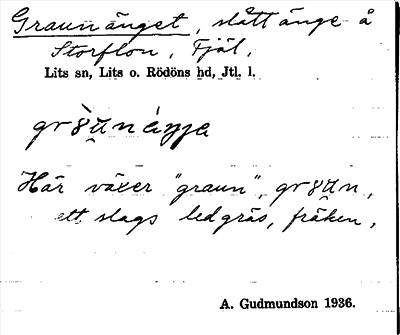 Graunänget, slåttänge å
Storflon, Fjäl,
Lits sn, Lits o. Rödöns hd, Jtl. l.
Här växer "graun",
ett slags ledgräs, fräken,
A. Gudmundson 1936.